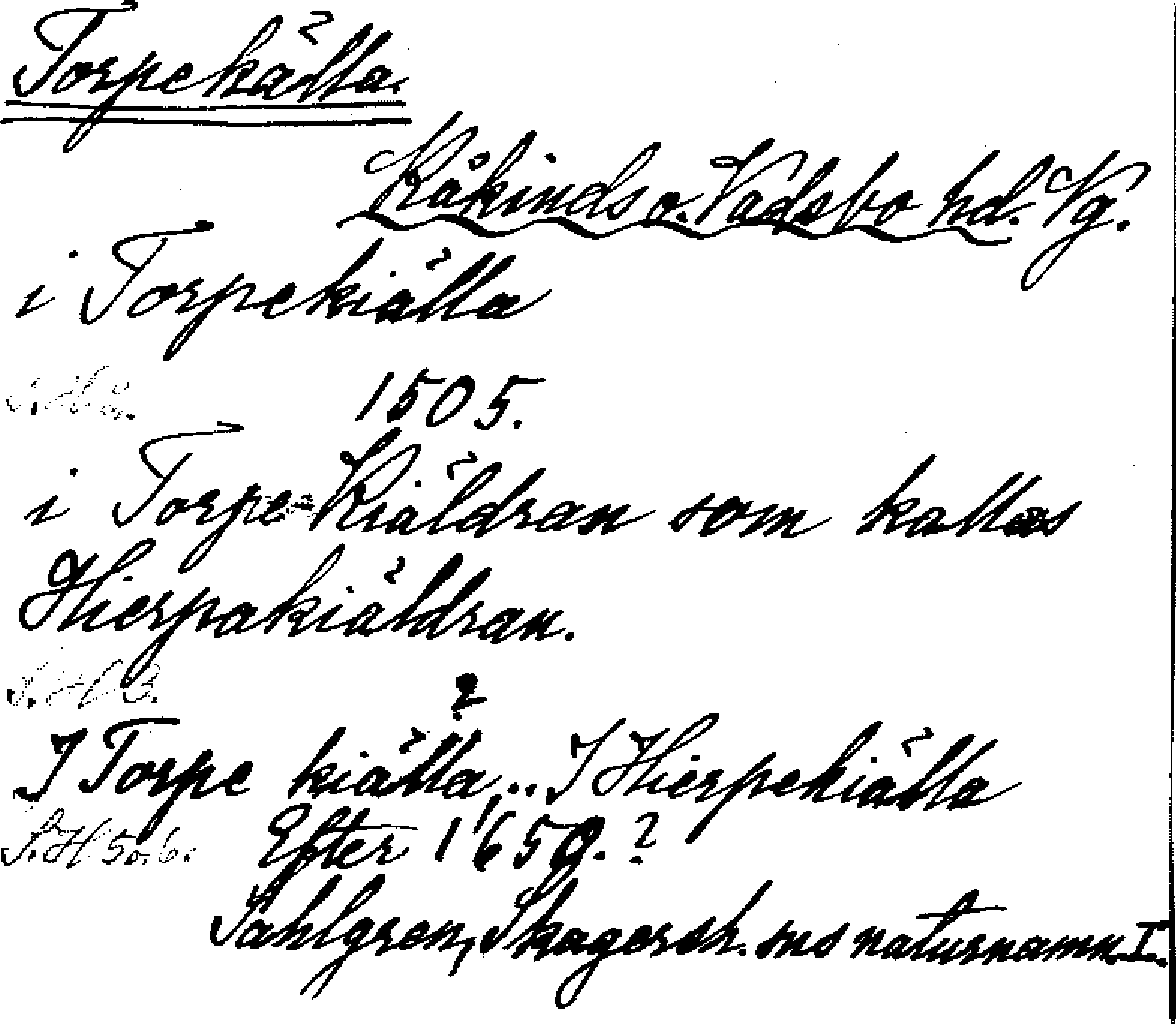 Torpekälla.
Kåkinds o. Vadsbo hd. Vg.
i Torpekiälla
1505.
i Torpe-Kiäldran som kallas
Hierpakiäldran.
S. H 3.
?
I Torpe kiälla,.. I Hierpekiälla
S. H 5 o. 6. Efter 1650. ?
Sahlgren, Skagersh. sns naturnamn. I.